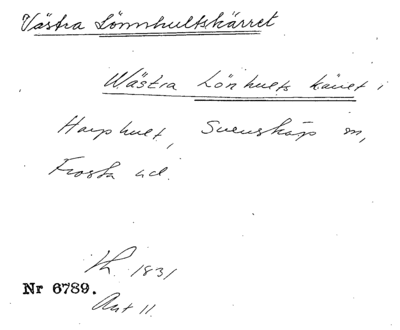 Västra Lönnhultskärret
Wästra Lönhults käret i
Harphult, Svensköp sn,
Frosta hd.
Lh. 1831
Nr 6789.
Akt 11.